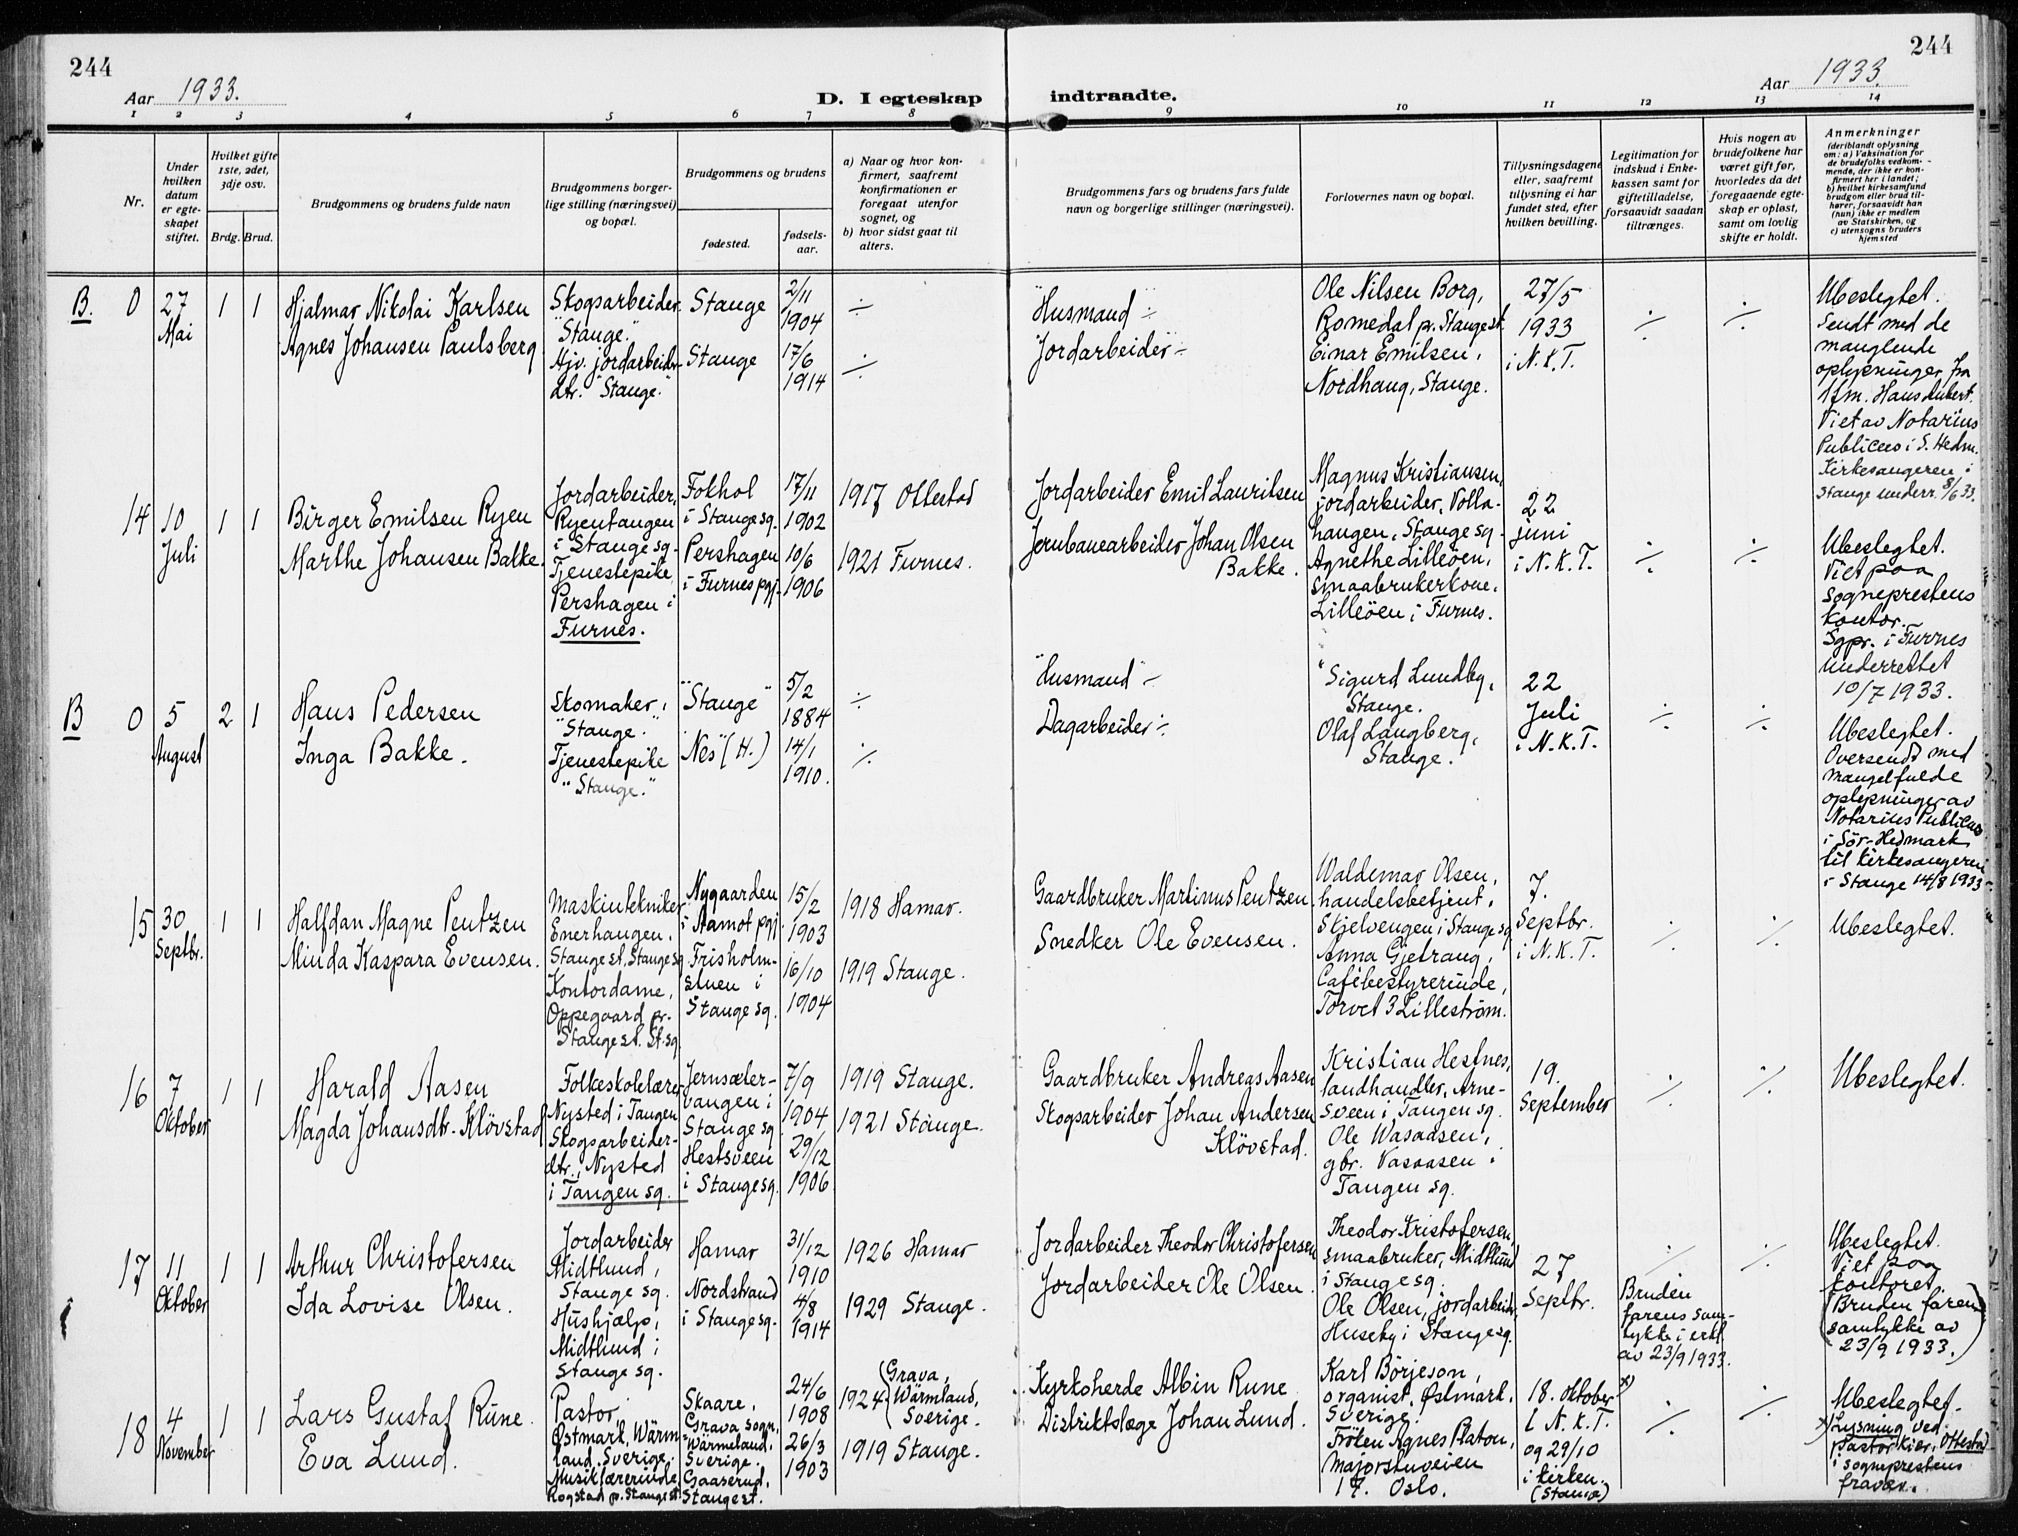 244
Aar 1933.
D. I egteskap
indtraadte.
Aar 1933.
244
1 2 3 4 5 6 7 8 9 10 11 12 13 14
Nr.
Under hvilken datum er egteskapet stiftet.
Hvilket gifte 1ste, 2det, 3dje osv.
Brdg. Brud.
Brudgommens og brudens fulde navn
Brudgommens borgerlige stilling (næringsvei) og bopæl.
Brudgommens og brudens
fødested.
fødselsaar.
a) Naar og hvor konfirmert, saafremt konfirmationen er foregaat utenfor sognet, og
b) hvor sidst gaat til alters.
Brudgommens fars og brudens fars fulde navn og borgerlige stillinger (næringsvei).
Forlovernes navn og bopæl.
Tillysningsdagene eller, saafremt tillysning ei har fundet sted, efter hvilken bevilling.
Legitimation for indskud i Enkekassen samt for giftetilladelse, forsaavidt saadan tiltrænges.
Hvis nogen av brudefolkene har været gift før, hvorledes da det foregaaende egteskap er opløst, samt om lovlig skifte er holdt.
Anmerkninger
(deriblandt oplysning om: a) Vaksination for de brudefolks vedkommende, der ikke er konfirmert her i landet;
b) hvilket kirkesamfund brudgom eller brud tilhører, forsaavidt han (hun) ikke er medlem av Statskirken, og
c) utensogns bruders hjemsted
B. 0
27 Mai
1 1
Hjalmar Nikolai Karlsen
Agnes Johansen Paulsberg
Skogsarbeider
"Stange."
Hjv. jordarbeider-
dtr. "Stange."
Stange
Stange
2/11
1904
17/6
1914
÷
÷
"Husmand" ÷
"Jordarbeider" ÷
Ole Nilsen Borg,
Romedal p. Stange st.
Einar Emilsen,
Nordhaug, Stange.
27/5
1933
i N.K.T.
÷
÷
Ubeslegtet.
Sendt med de
manglende
oplysninger fra
Viet av Notarius
Publicus i S. Hedm.
Kirkesangeren i
Stange underr. 8/6 33.
14
10 Juli
1 1
Birger Emilsen Ryen
Marthe Johansen Bakke.
Jordarbeider,
Ryentangen
i Stange sg.
Tjenestepike
Pershagen i
Furnes.
Fokhol
i Stange sg.
Pershagen
i Furnes pgj.
17/11
1902
10/6
1906
1917 Ottestad
1921 Furnes.
Jordarbeider Emil Lauritsen
Jernbanearbeider Johan Olsen
Bakke.
Magnus Kristiansen,
jordarbeider, Volla-
haugen, Stange sg.
Agnethe Lilleöen,
smaabrukerkone,
Lilleöen i Furnes.
22
juni
i N.K.T.
÷
÷
Ubeslegtet.
Viet paa
sogneprestens
kontor.
Sgpr. i Furnes
underrettet
10/7 1933.
B 0
5 August
2 1
Hans Pedersen
Inga Bakke.
Skomaker,
"Stange."
Tjenestepike
"Stange."
"Stange"
"Nes" (H.)
5/2
1884
14/1
1910.
÷
÷
"Husmand" ÷
Dagarbeider ÷
"Sigurd Lundby,
Stange.
Olaf Langberg,
Stange.
22
Juli
i N.K.T.
÷
÷
Ubeslegtet.
Oversendt med
mangelfulde
oplysninger av
Notarius Publicus
i Sör-Hedmark
til kirkesangeren
i Stange 14/8 1933
15
30 Septbr.
1 1
Halfdan Magne Pentzen
Minda Kaspara Evensen.
Maskintekniker
Enerhaugen,
Stange st. Stange sg.
Kontordame,
Oppegaard pr.
Stange st. St. sg.
Nygaarden
i Aamot pgj.
Frisholm-
stuen i
Stange sg.
15/2
1903
16/10
1904
1918 Hamar.
1919 Stange.
Gaardbruker Martinus Pentzen.
Snedker Ole Evensen.
Waldemar Olsen,
handelsbetjent,
Skjelvengen i Stange sg
Anna Gjetrang,
Cafébestyrerinde,
Torvet 3 Lilleström.
7.
Septbr.
i N.K.T.
÷
÷
Ubeslegtet.
16
7 Oktober
1 1
Harald Aasen
Magda Johansdtr. Klövstad
Folkeskolelærer
Nysted i Tangen
Skogsarbeider-
dtr., Nysted
i Tangen sg.
Jernsæter-
vangen i
Stange sg
Hestsveen
i Stange sg.
7/9
1904
29/12
1906
1919 Stange.
1921 Stange.
Gaardbruker Andreas Aasen
Skogsarbeider Johan Andersen
Klövstad.
Kristian Hestnes,
landhandler, Arne-
sveen i Tangen sg.
Ole Wasaasen,
gbr. Vasaasen i
Tangen sg.
19.
September
÷
÷
Ubeslegtet.
17
11 Oktober
1 1
Arthur Christofersen
Ida Lovise Olsen.
Jordarbeider
Midtlund,
Stange sg.
Hushjælp,
Midtlund i
Stange sg.
Hamar
Nordstrand
i Stange sg.
31/12
1910
4/8
1914
1926 Hamar
1929 Stange.
Jordarbeider Theodor Christofersen
Jordarbeider Ole Olsen.
Theodor Kristofersen,
smaabruker, Midtlund
i Stange sg.
Ole Olsen, jordarbeider,
Huseby i Stange sg.
27
Septbr.
÷
Bruden
farens sam-
tykke i erkl.
av 23/9 1933.
÷
Ubeslegtet.
Viet paa
kontoret.
(Bruden faren
samtykke av
23/9 1933.)
18
4 November
1 1
Lars Gustaf Rune.
Eva Lund.
Pastor
Östmark, Wärm-
land. Sverige.
Musiklærerinde
Rogstad p. Stange st.
Skaare,
Grava sogn,
Wärmeland,
Sverige.
Gaaserud,
Stange st.
24/6
1908
26/3
1903
1924 (Grava,
Wärmland,
Sverige.
1919 Stange.
Kyrkoherde Albin Rune
Distriktslæge Johan Lund.
Karl Börjeson,
organist, Östmark,
Sverige.
Fröken Agnes Platou,
Majorstuveien
17. Oslo.
18. Oktober x)
i N.K.T.
og 29/10
i kirken.
(Stange)
÷
÷
Ubeslegtet.
x) Lysning ved
Pastor Kiær, Ottestad
i sogneprestens
fravær.